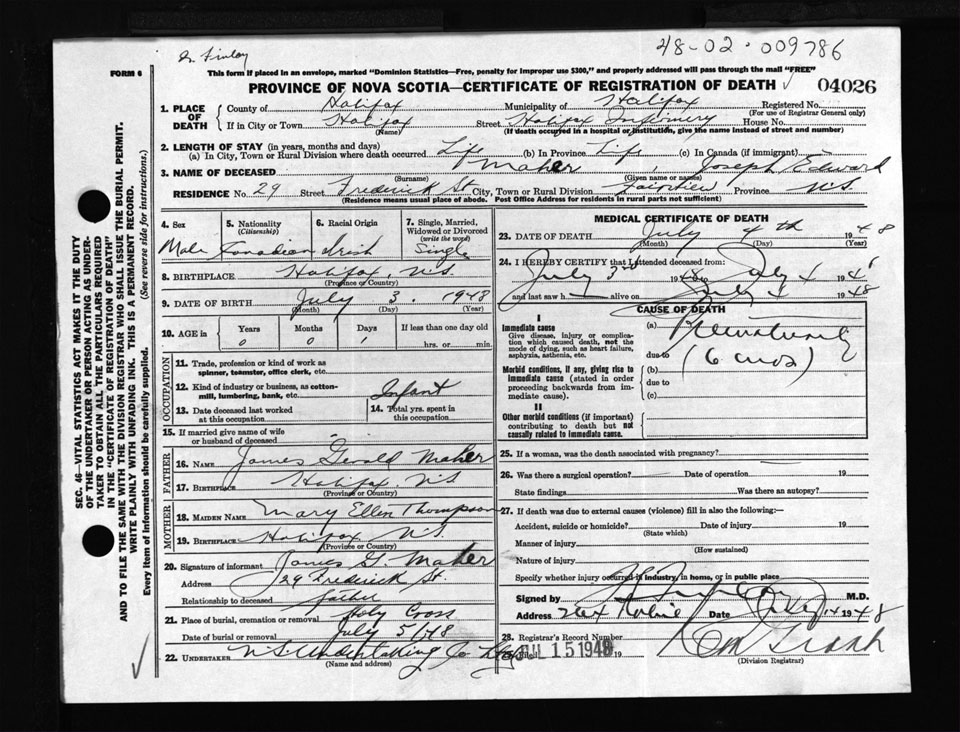 48-02-009786
FORM 6
This form if placed in an envelope, marked "Dominion Statistics—Free, penalty for improper use $300," and properly addressed will pass through the mail "FREE"
PROVINCE OF NOVA SCOTIA—CERTIFICATE OF REGISTRATION OF DEATH
04026
1. PLACE OF DEATH County of Halifax Municipality of Halifax Registered No.
(For use of Registrar General only)
If in City or Town Halifax Street Halifax Infirmary House No.
(Name) (If death occurred in a hospital or institution, give the name instead of street and number)
2. LENGTH OF STAY (in years, months and days)
(a) In City, Town or Rural Division where death occurred Life (b) In Province Life (c) In Canada (if immigrant)
3. NAME OF DECEASED Maher Joseph Edward
(Surname) (Given name or names)
RESIDENCE No. 29 Street Frederick St. City, Town or Rural Division Fairview Province N.S.
(Residence means usual place of abode. Post Office Address for residents in rural parts not sufficient)
4. Sex
Male
5. Nationality
(Citizenship)
Canadian
6. Racial Origin
Irish
7. Single, Married, Widowed or Divorced
(write the word)
Single
8. BIRTHPLACE Halifax, N.S.
(Province or Country)
9. DATE OF BIRTH July 3. 1948
(Month) (Day) (Year)
10. AGE in Years Months Days If less than one day old
0 0 1 hrs. or min.
OCCUPATION
11. Trade, profession or kind of work as spinner, teamster, office clerk, etc.
12. Kind of industry or business, as cotton-mill, lumbering, bank, etc. Infant
13. Date deceased last worked at this occupation
14. Total yrs. spent in this occupation
15. If married give name of wife or husband of deceased
FATHER
16. NAME James Gerald Maher
17. BIRTHPLACE Halifax, N.S.
(Province or Country)
MOTHER
18. MAIDEN NAME Mary Ellen Thompson
19. BIRTHPLACE Halifax N.S.
(Province or Country)
20. Signature of informant James G. Maher
Address 29 Frederick St.
Relationship to deceased father
21. Place of burial, cremation or removal Holy Cross
Date of burial or removal July 5/48
22. UNDERTAKER N.S. Undertaking Co. Ltd
(Name and address)
MEDICAL CERTIFICATE OF DEATH
23. DATE OF DEATH July 4th 1948
(Month) (Day) (Year)
24. I HEREBY CERTIFY that I attended deceased from:
July 3rd 1948 to July 4 194
and last saw h alive on July 4 1948
CAUSE OF DEATH
I
Immediate cause
Give disease, injury or complication which caused death, not the mode of dying, such as heart failure, asphyxia, asthenia, etc.
(a) Prematurity
due to (6 mos)
Morbid conditions, if any, giving rise to immediate cause (stated in order proceeding backwards from immediate cause).
(b)
due to
(c)
II
Other morbid conditions (if important) contributing to death but not causally related to immediate cause.
25. If a woman, was the death associated with pregnancy?
26. Was there a surgical operation? Date of operation 19
State findings Was there an autopsy?
27. If death was due to external causes (violence) fill in also the following:—
Accident, suicide or homicide? Date of injury 19
(State which)
Manner of injury
(How sustained)
Nature of injury
Specify whether injury occurred in industry, in home, or in public place
Signed by M.D.
Address Date July 14 1948
28. Registrar's Record Number
Filed JUL 15 1948 19
(Division Registrar)
SEC. 46—VITAL STATISTICS ACT MAKES IT THE DUTY
OF THE UNDERTAKER OR PERSON ACTING AS UNDER-
TAKER TO OBTAIN ALL THE PARTICULARS REQUIRED
IN THE "CERTIFICATE OF REGISTRATION OF DEATH"
AND TO FILE THE SAME WITH THE DIVISION REGISTRAR WHO SHALL ISSUE THE BURIAL PERMIT.
WRITE PLAINLY WITH UNFADING INK. THIS IS A PERMANENT RECORD.
Every item of information should be carefully supplied. (See reverse side for instructions.)